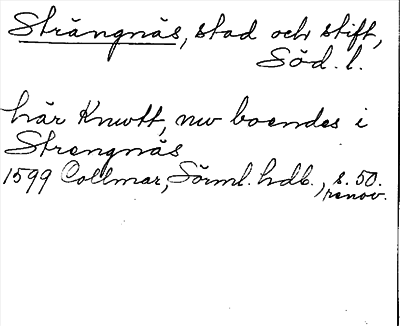 Strängnäs, stad och stift,
Söd. l.
här Knutt, nw boendes i
Strengnäs
1599 Collmar, Sörml. hdb., s. 50.
renov.